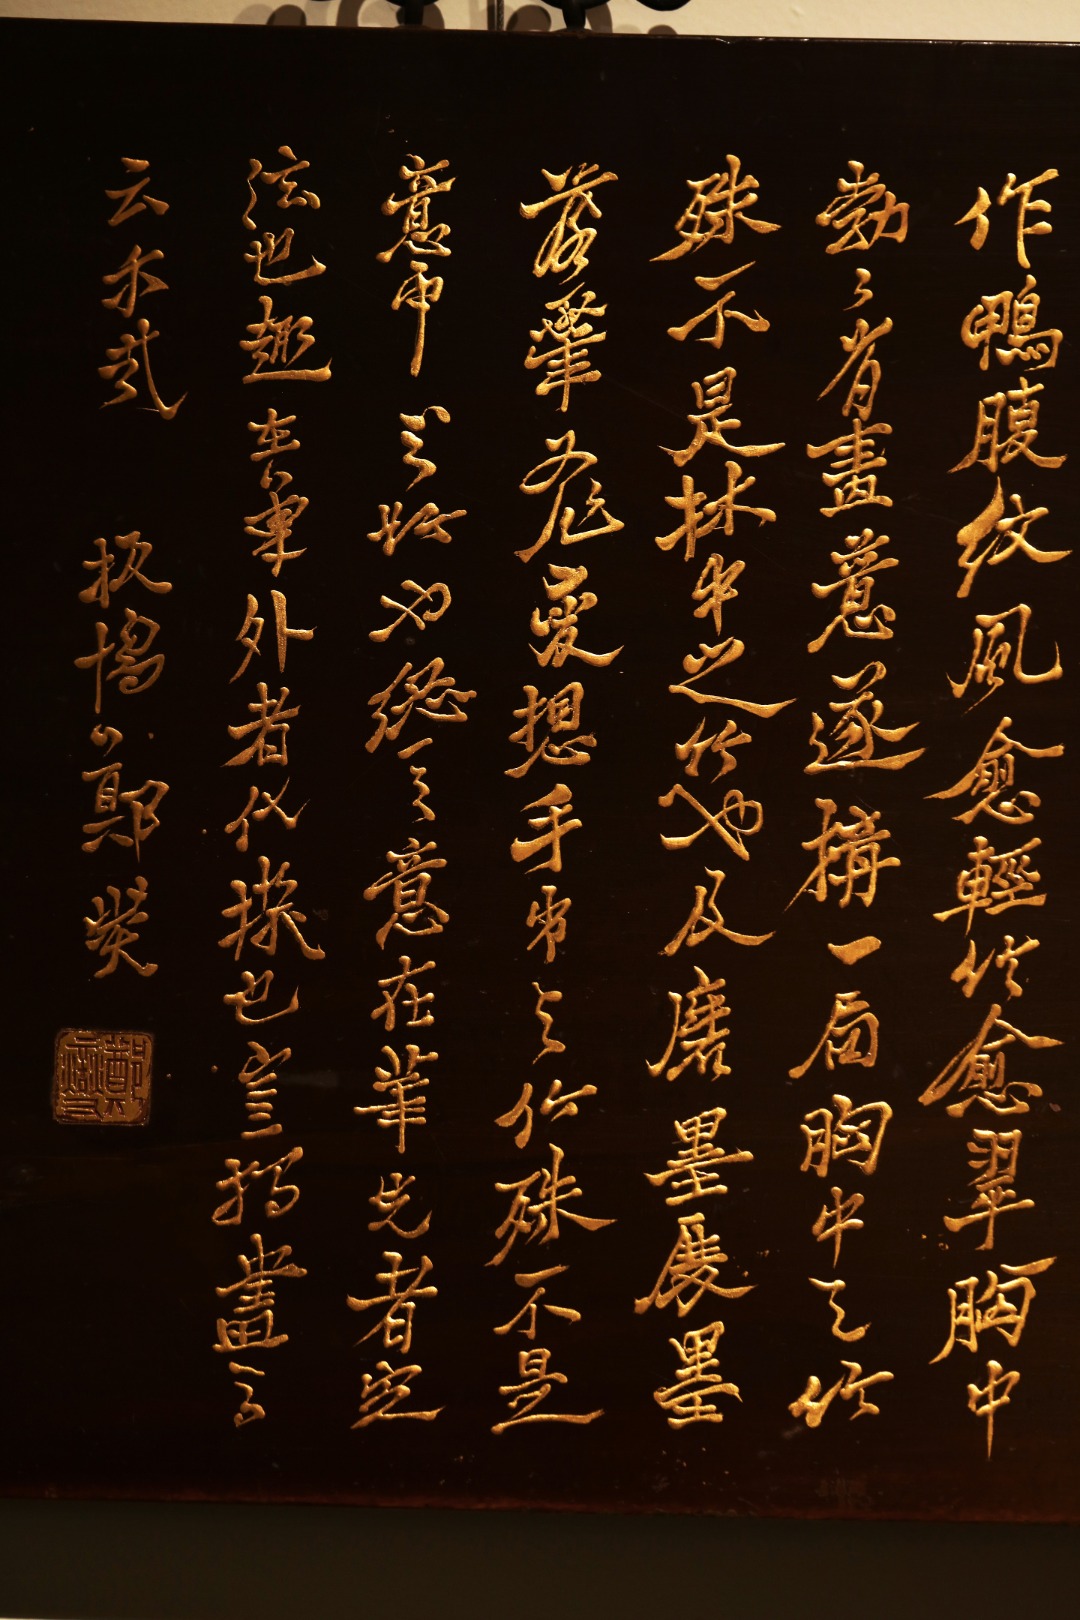 作鴨腹紋風愈輕竹愈翠胸中
勃〻有畫意遂搆一局胸中之竹
殊不是林中之竹也及磨墨展墨
落筆變想手中之竹殊不是
意中之竹也總之意在筆先者定
法也趣在筆外者化機也豈獨畫
云尔哉 板橋鄭燮